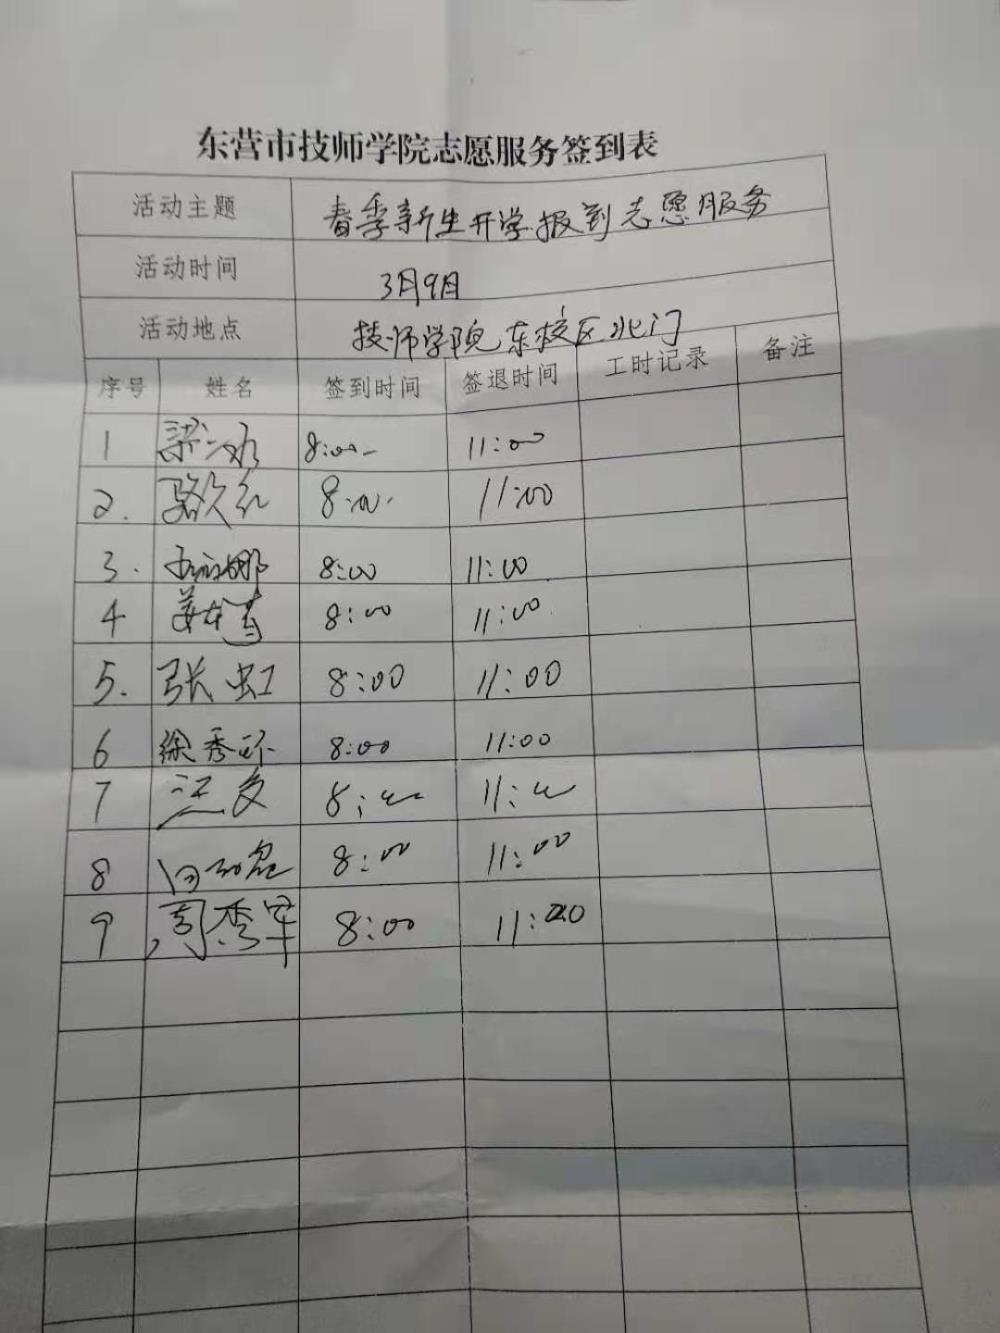 东营市技师学院志愿服务签到表
活动主题 春季新生开学报到志愿服务
活动时间 3月9日
活动地点 技师学院东校区北门
序号 姓名 签到时间 签退时间 工时记录 备注
1 8:00 11:00
2. 8:00 11:00
3. 8:00 11:00
4 8:00 11:00
5. 张虹 8:00 11:00
6 徐秀环 8:00 11:00
7 8:00 11:00
8 8:00 11:00
9 周秀军 8:00 11:20